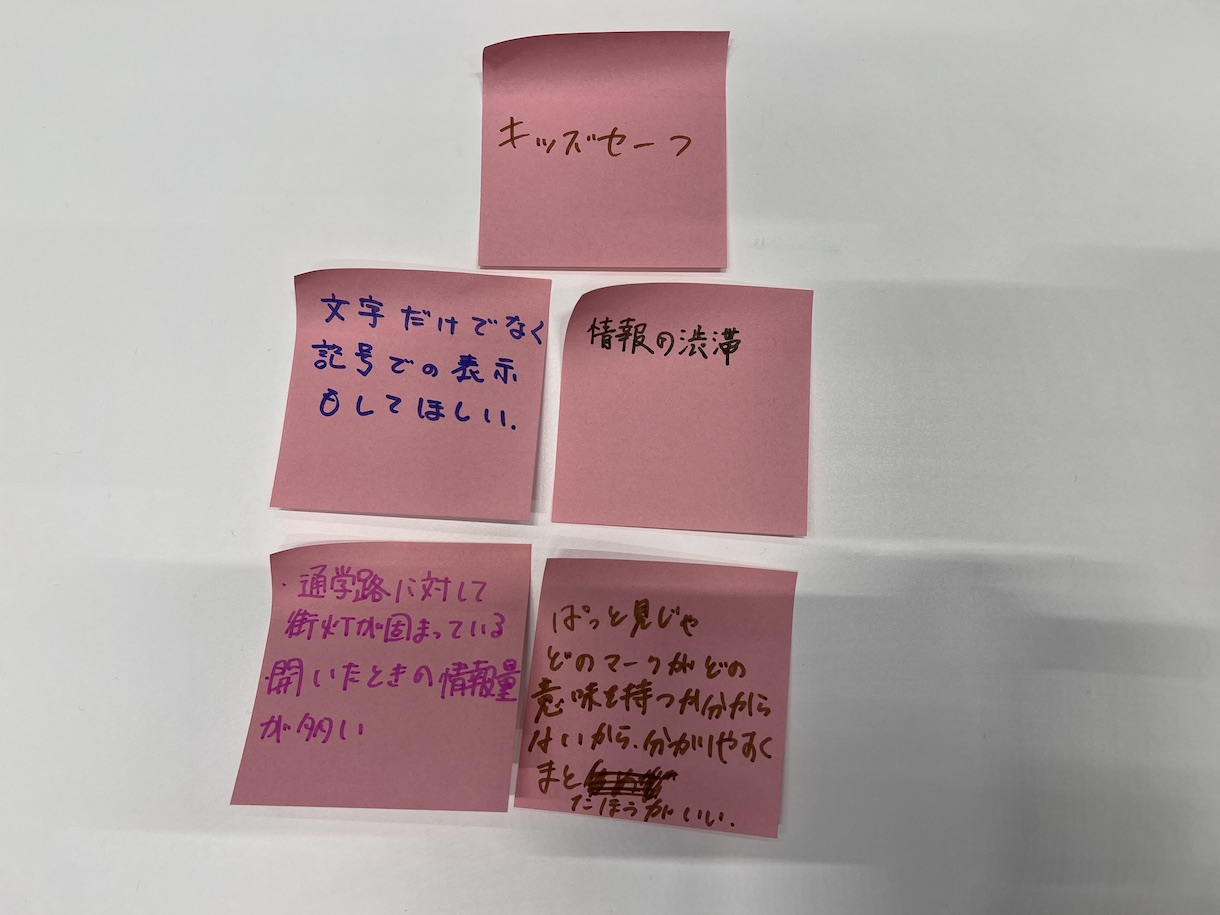 キッズセーフ
文字だけでなく
記号での表示
もしてほしい.
情報の渋滞
・通学路に対して
街灯が固まっている
・開いたときの情報量
が多い
ぱっと見じゃ
どのマークがどの
意味を持つか分から
ないから、分かりやすく
まと
たほうがいい.